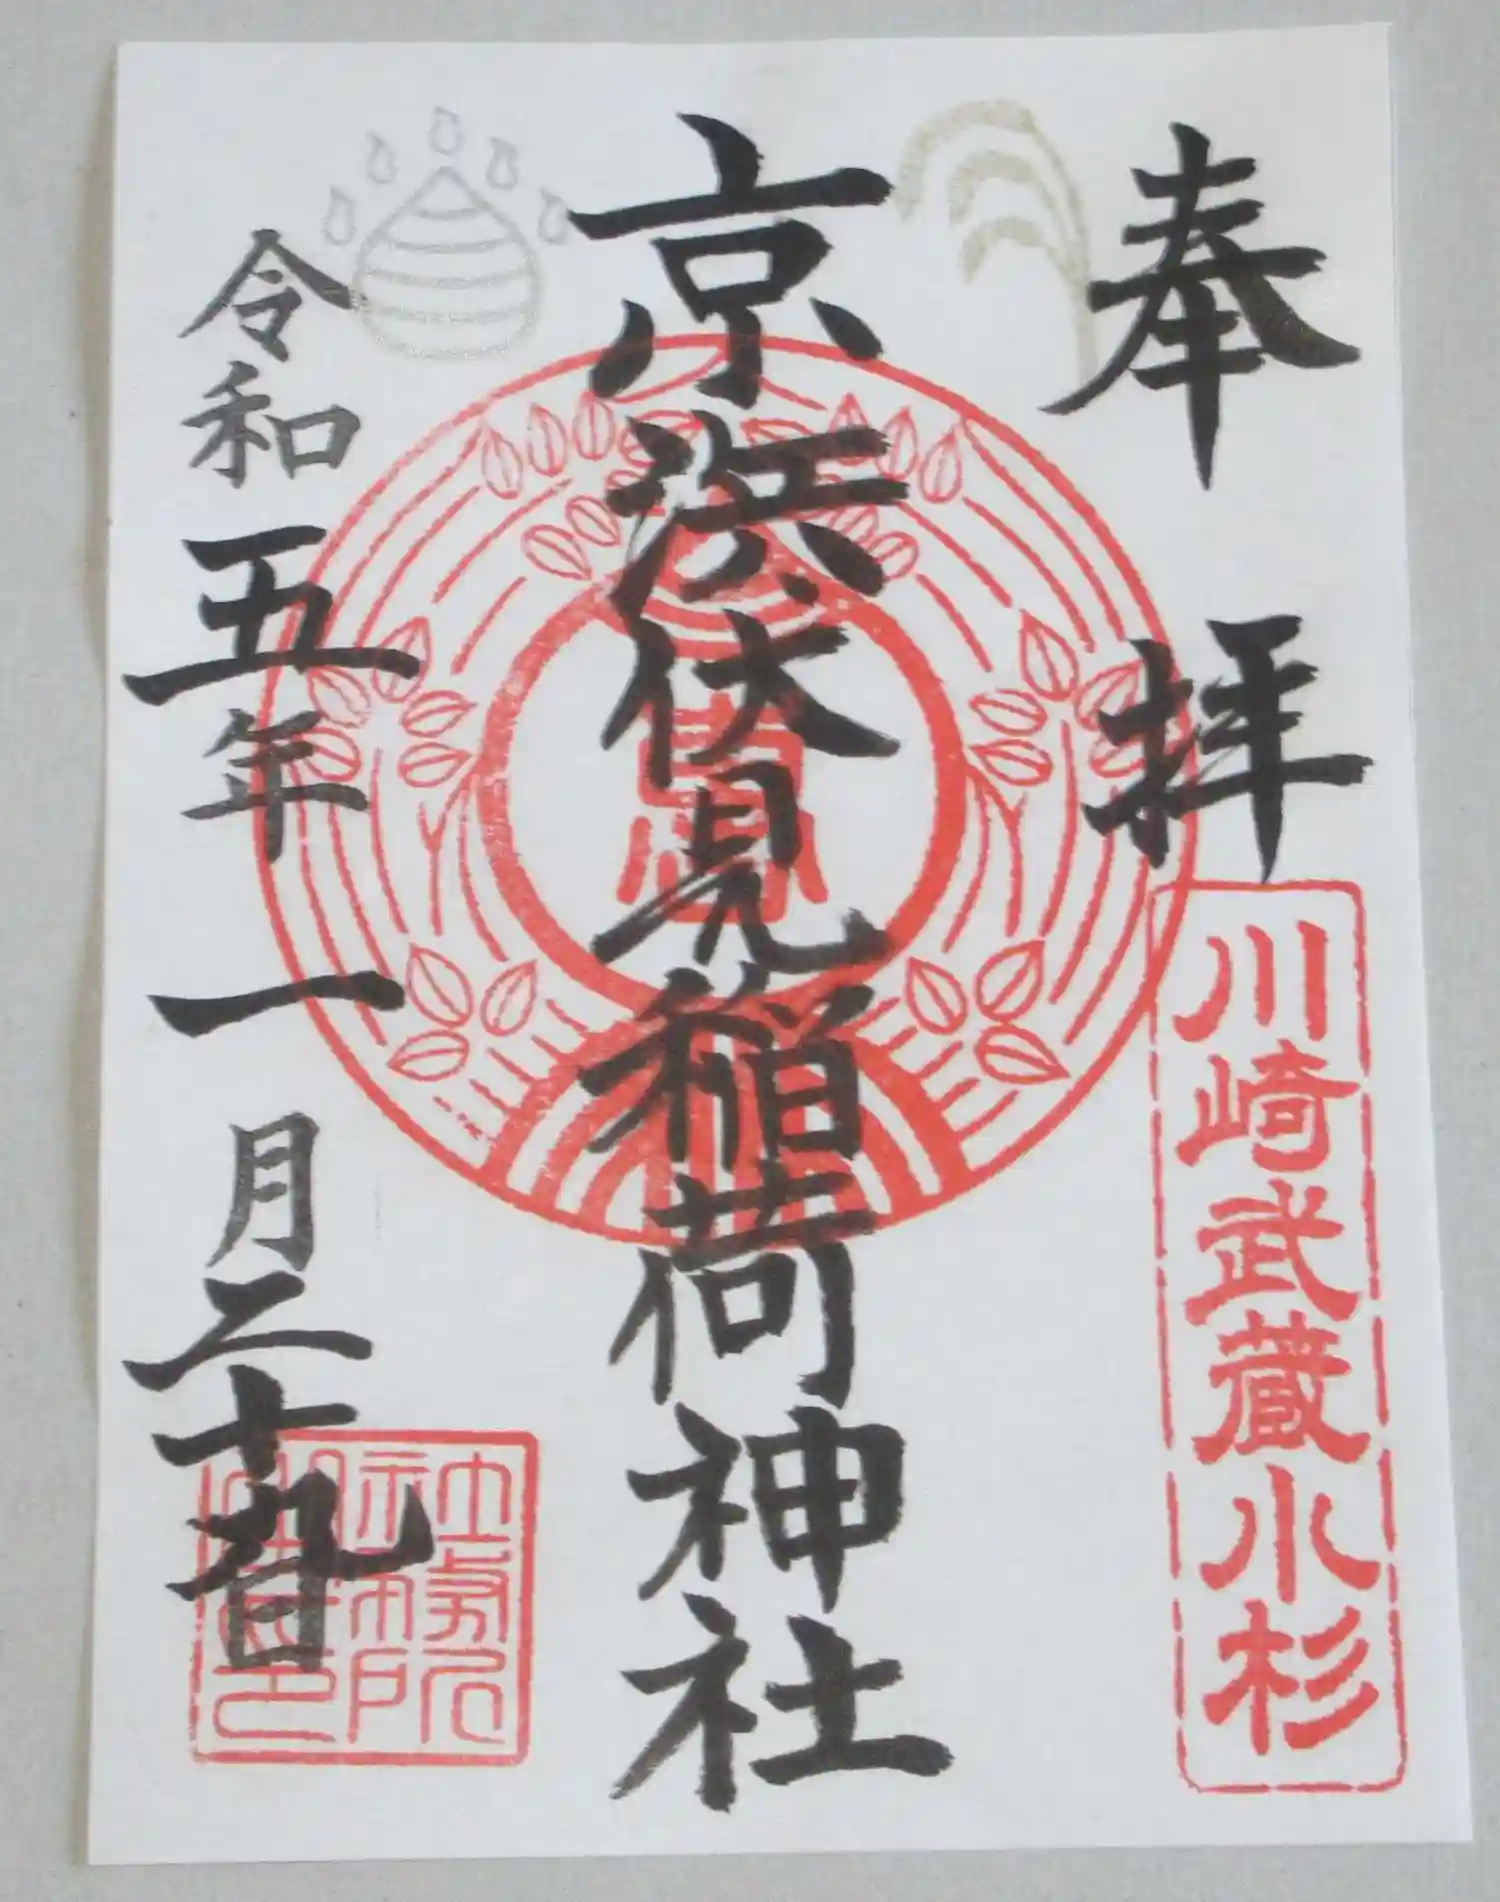 奉拝
川崎武蔵小杉
京浜伏見稲荷神社
令和五年一月二十九日
社務所